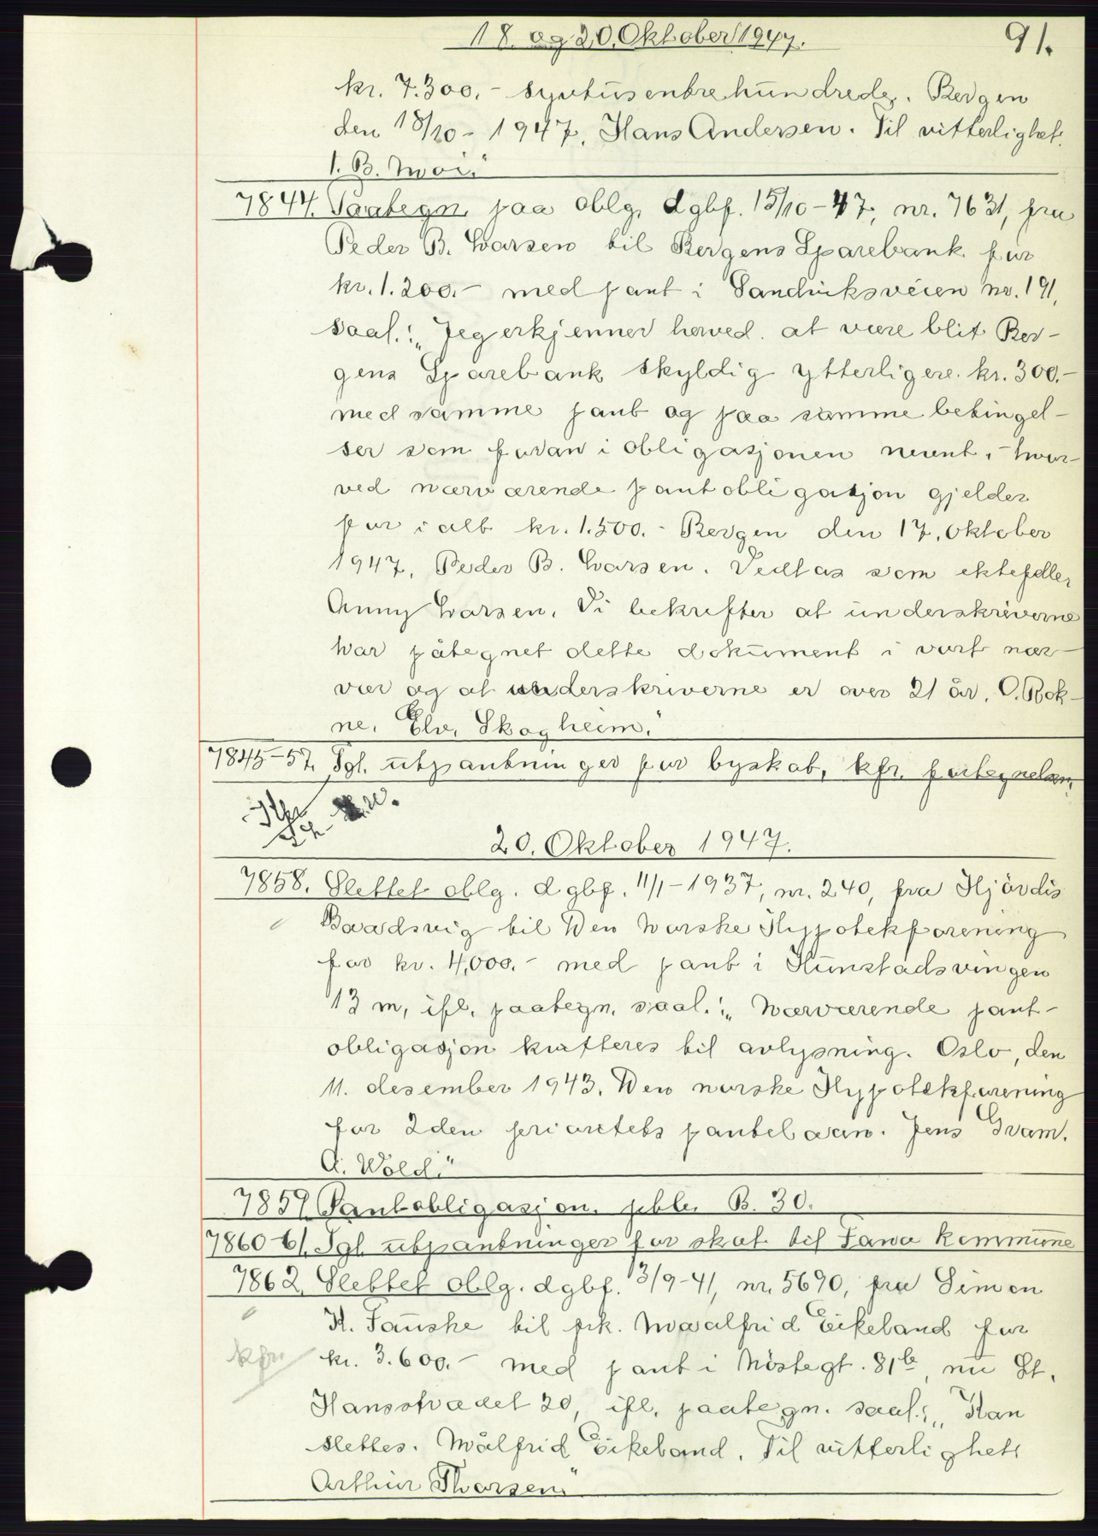 18. og 20. Oktober 1947.
91.
kr. 7.300.- syvtusentrehundrede. Bergen
den 18/10 - 1947. Hans Andersen. Til vitterlighet:
I. B. Moi."
7844. Paategn. paa oblg. dgbf. 15/10-47, nr. 7631, fra
Peder B. Larsen til Bergens Sparebank for
kr. 1.200.- med pant i Sandviksveien nr. 191,
saal.: "Jeg erkjenner herved at være blit Ber-
gens Sparebank skyldig ytterligere kr. 300.-
med samme pant og paa samme betingel-
ser som foran i obligasjonen nevnt, - hvor-
ved nærværende pantobligasjon gjelder
for ialt kr. 1.500.- Bergen den 17. oktober
1947. Peder B. Larsen. Vedtas som ektefelle,
Anny Larsen. Vi bekrefter at underskriverne
har påtegnet dette dokument i vort nær-
vær og at underskriverne er over 21 år. O. Rok-
ne. Elv. Skogheim."
7845-57. Tgl. utpantninger for byskat, kfr. fortegnelsen.
20. Oktober 1947.
7858. Slettet oblg. dgbf. 11/1-1937, nr. 240, fra Hjördis
Baadsvig til Den Norske Hypotekforening
for kr. 4.000.- med pant i Hunstadsvingen
13 m, ifl. paategn. saal.: "Nærværende pant-
obligasjon kvitteres til avlysning. Oslo, den
11. desember 1943. Den norske Hypotekforening
for 2den prioritets pantelaan. Jens Gram.
A. Wold."
7859 Pantobligasjon. jbl. B. 30.
7860-61. Tgl. utpantninger for skat til Fana kommune
7862 Slettet oblg. dgbf. 13/9-41, nr. 5690, fra Simon
H. Fauske til frk. Maalfrid Eikeland for
kfr.
kr. 3.600.- med pant i Nöstegt. 81b, nu St.
Hansstrædet 20, ifl. paategn. saal.: "Kan
slettes. Målfrid Eikeland. Til vitterlighet:
Arthur Thorsen."